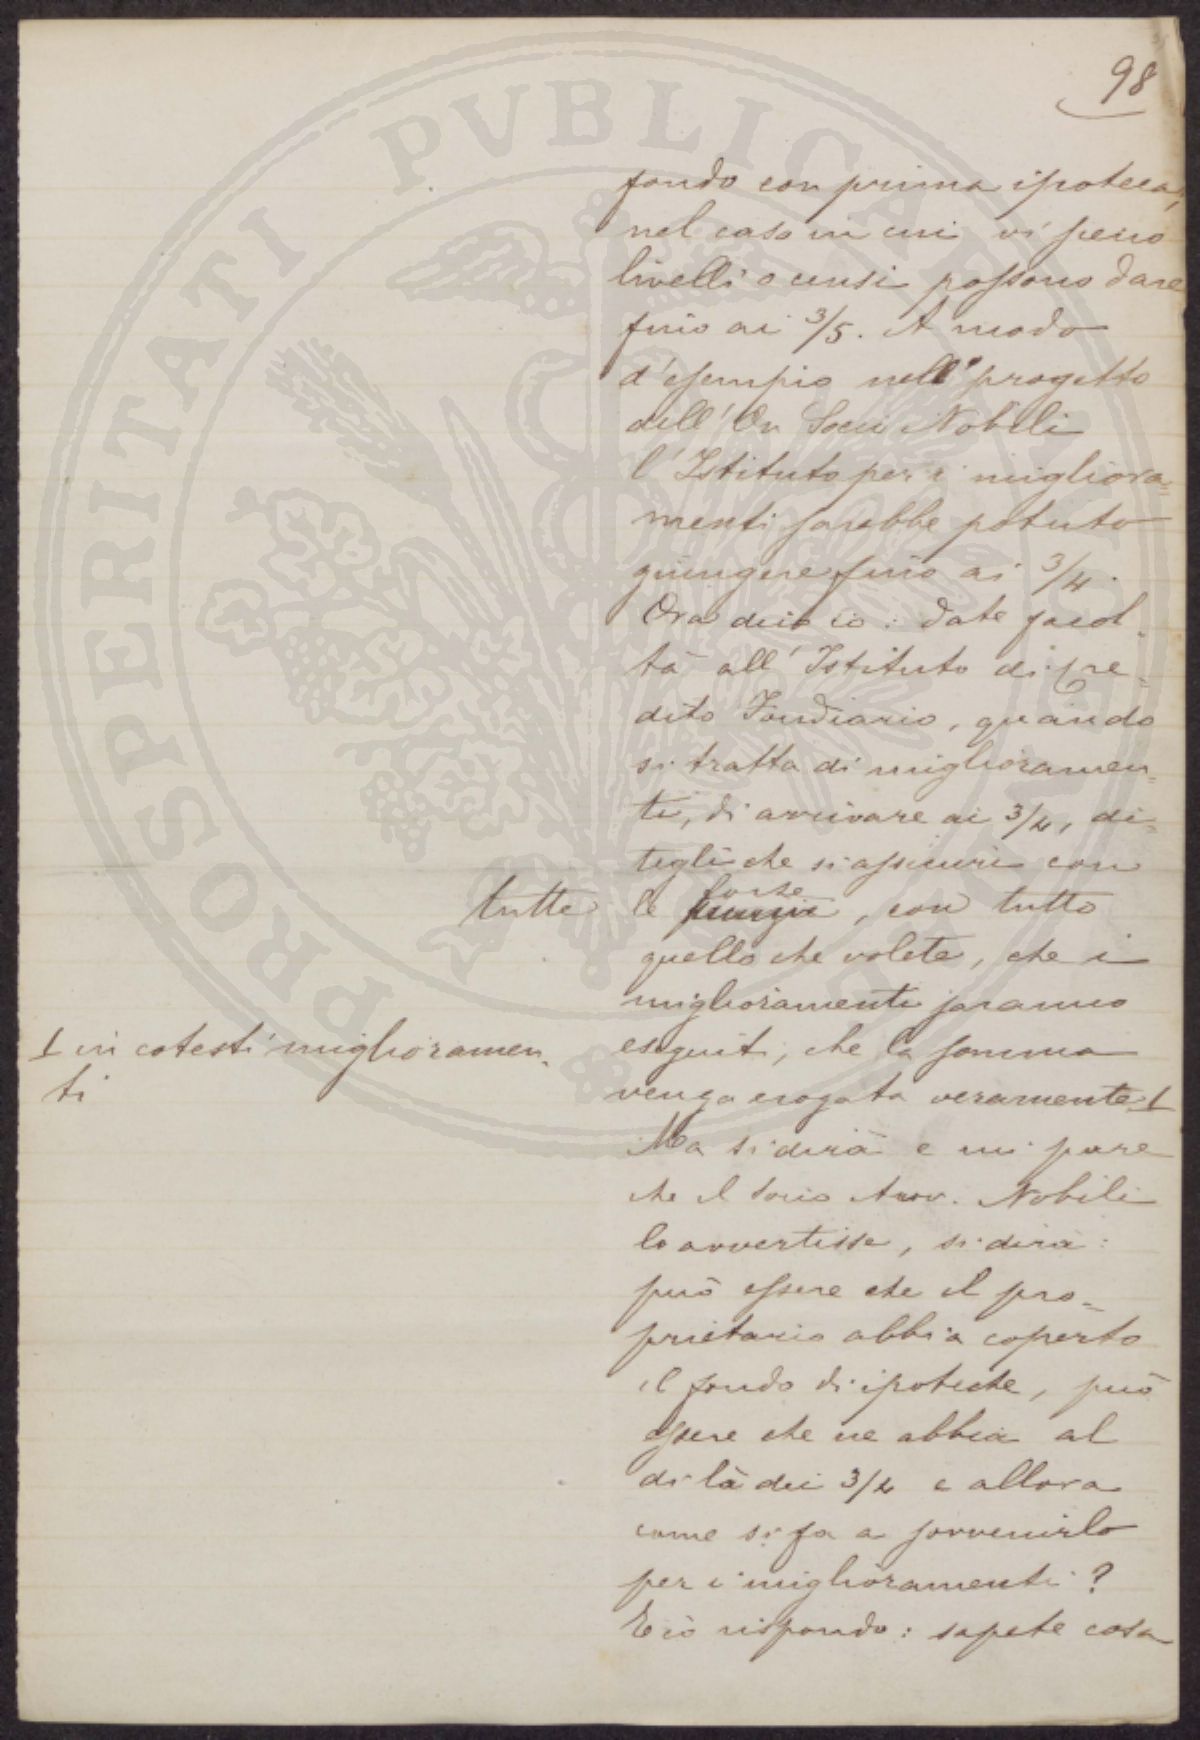 98
fondo con prima ipoteca,
nel caso in cui vi sieno
livelli o censi possono dare
fino ai 3/5. A modo
d'esempio nell' progetto
dell'On Socii Nobili
l'Istituto per i migliora=
menti sarebbe potuto
giungere fino ai 3/4.
Ora dico io: date facol=
tà all'Istituto di Cre=
dito Fondiario, quando
si tratta di miglioramen=
ti, di arrivare ai 3/4, di=
tegli che si assicuri con
tutte le forze, con tutto
quello che volete, che i
miglioramenti saranno
eseguiti, che la somma
venga erogata veramente
in cotesti miglioramen=
ti
Ma si dirà e mi pare
che il Socio Avv. Nobili
lo avvertisse, si dirà:
può essere che il pro=
prietario abbia coperto
il fondo di ipoteche, può
essere che ne abbia al
di là dei 3/4 e allora
come si fa a sovvenirlo
per i miglioramenti?
E io rispondo: sapete cosa
PROSPERITATI PVBLICAE